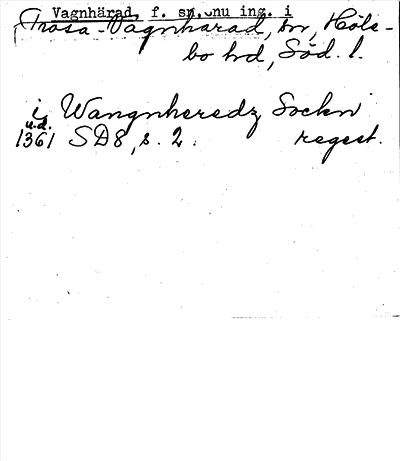 Vagnhärad, f. sn, nu ing. i
Trosa-Vagnhärad, sn, Höle-
bo hd, Söd. l.
i Wangnheredz Sockn
u.d.
1361 SD8, s. 2. regest.